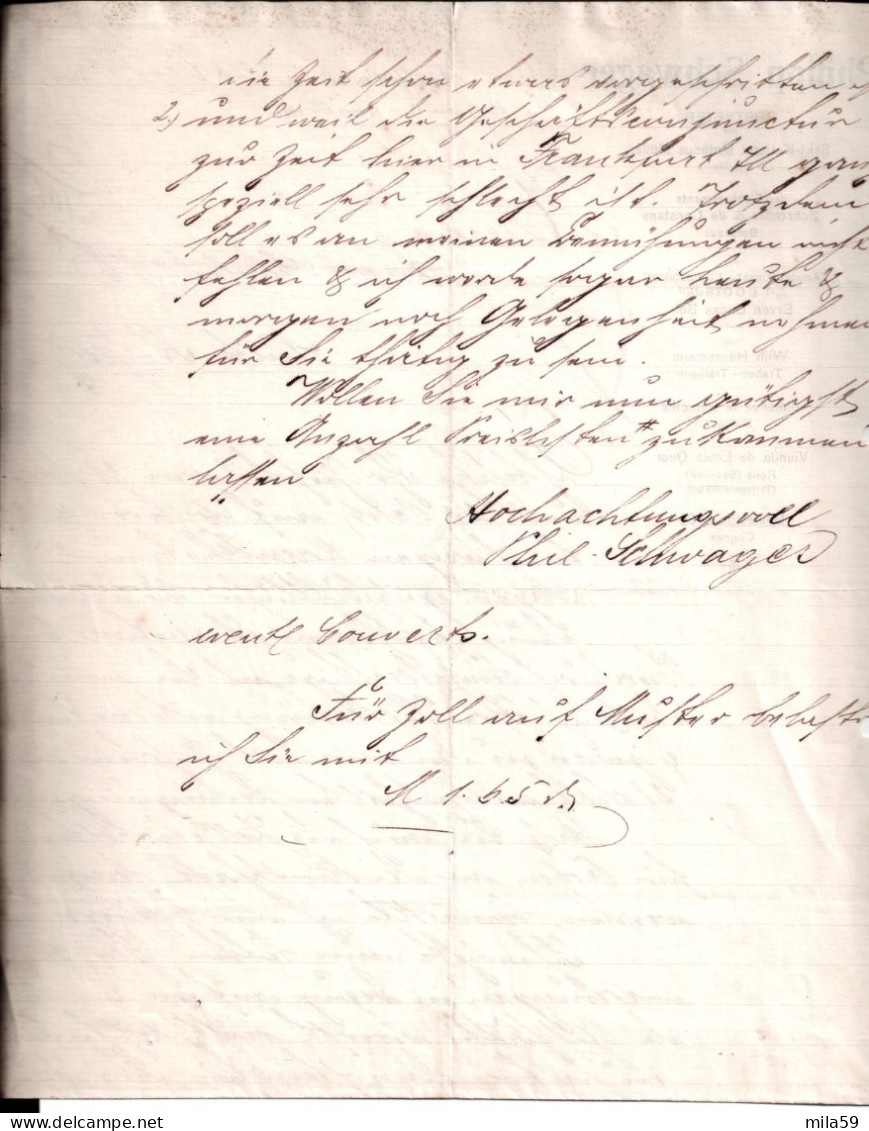 die Zeit schon etwas vorgeschritten
2.) und weil die Geschäftsconjunctur
zur Zeit hier in Frankfurt
speziell sehr schlecht ist. Trotzdem
soll es an meinen Bemühungen nicht
fehlen & ich werde sogar heute &
morgen noch Gelegenheit nehmen
für Sie thätig zu sein.
Wollen Sie mir nun gütigst
eine Anzahl Preislisten zukommen
lassen
Hochachtungsvoll
Phil. Schwager
eventl Couverts.
Für Zoll auf Muster belaste
ich Sie mit
M 1.65
mila59